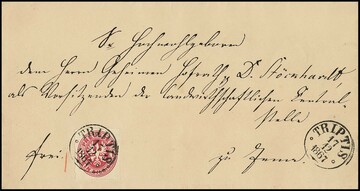 Sr. Hochwohlgeboren
dem Herrn Geheimen Hofrath pp Dr. Stöckhardt
als Vorsitzenden der landwirthschaftlichen Central-
stelle
frei
zu Jena.
TRIPTIS
TRIPTIS
17
12
1867